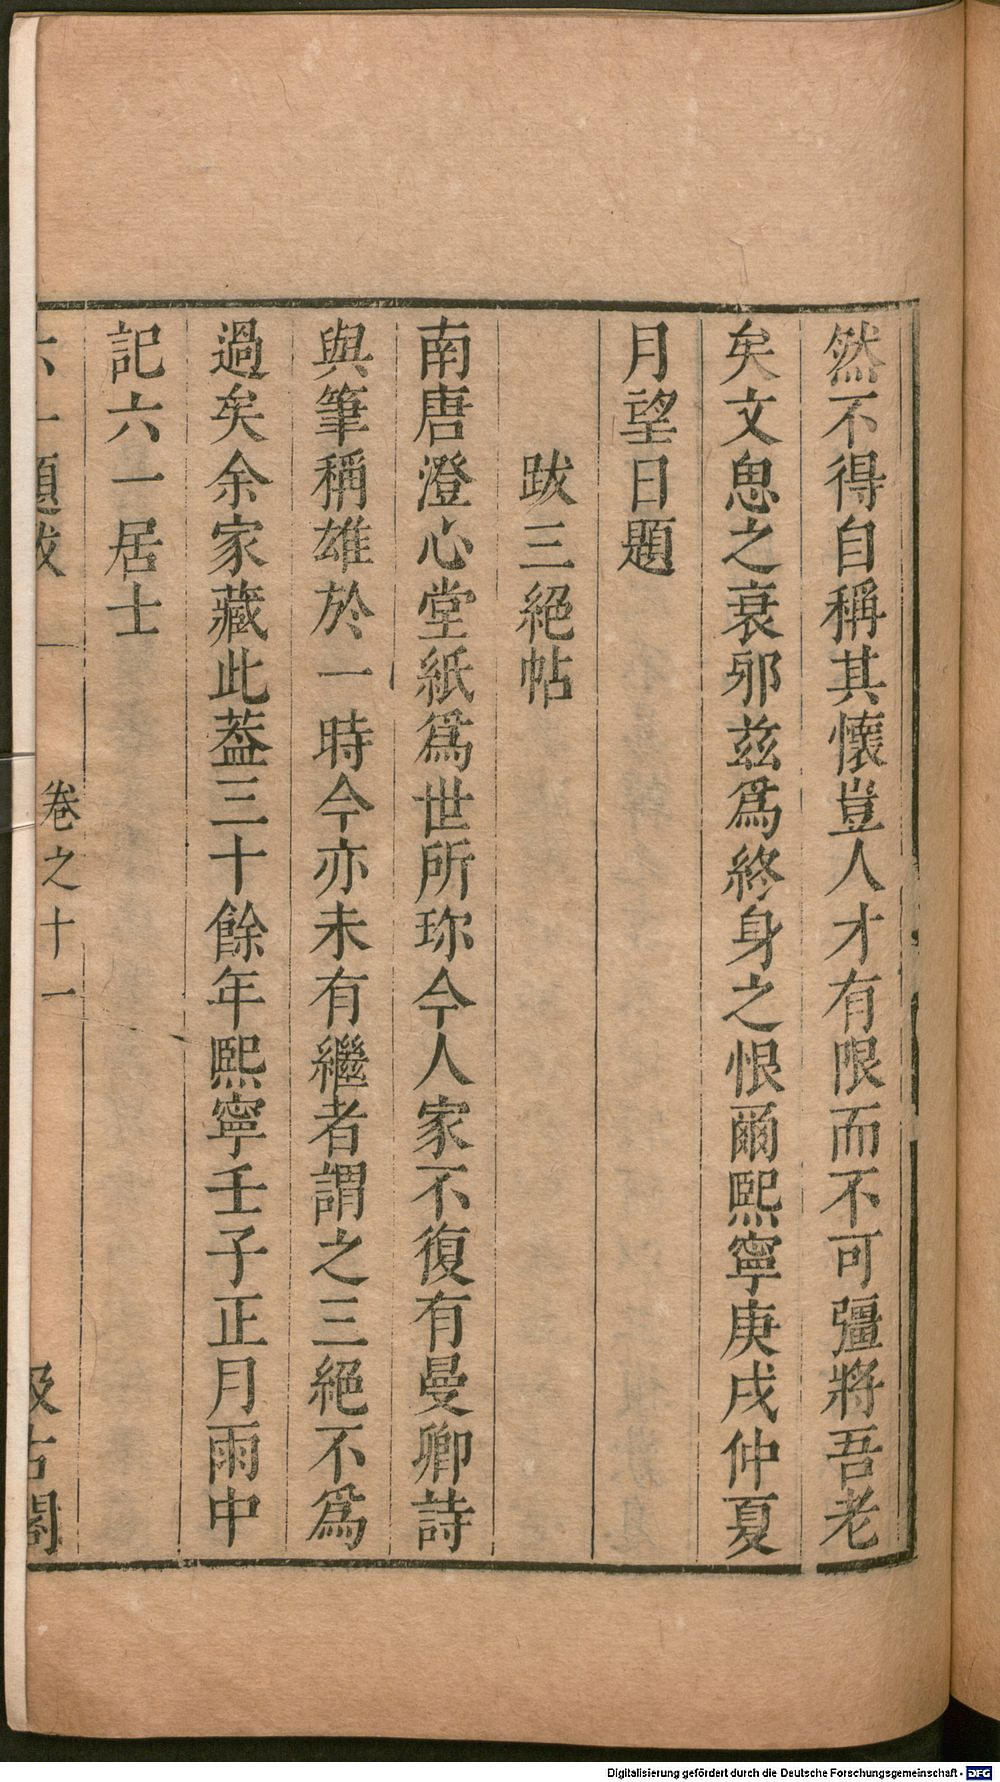 然不得自稱其懷豈人才有限而不可彊將吾老
矣文思之衰邪茲爲終身之恨爾熙寧庚戌仲夏
月望日題
跋三絕帖
南唐澄心堂紙爲世所珎今人家不復有曼卿詩
與筆稱雄於一時今亦未有繼者謂之三絕不爲
過矣余家藏此葢三十餘年熙寧壬子正月雨中
記六一居士
六一題跋 卷之十一 汲古閣
Digitalisierung gefördert durch die Deutsche Forschungsgemeinschaft - DFG